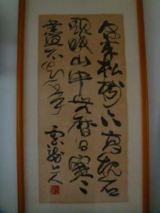 偶來松樹下高枕石
頭眠山中無曆日寒
盡不知年